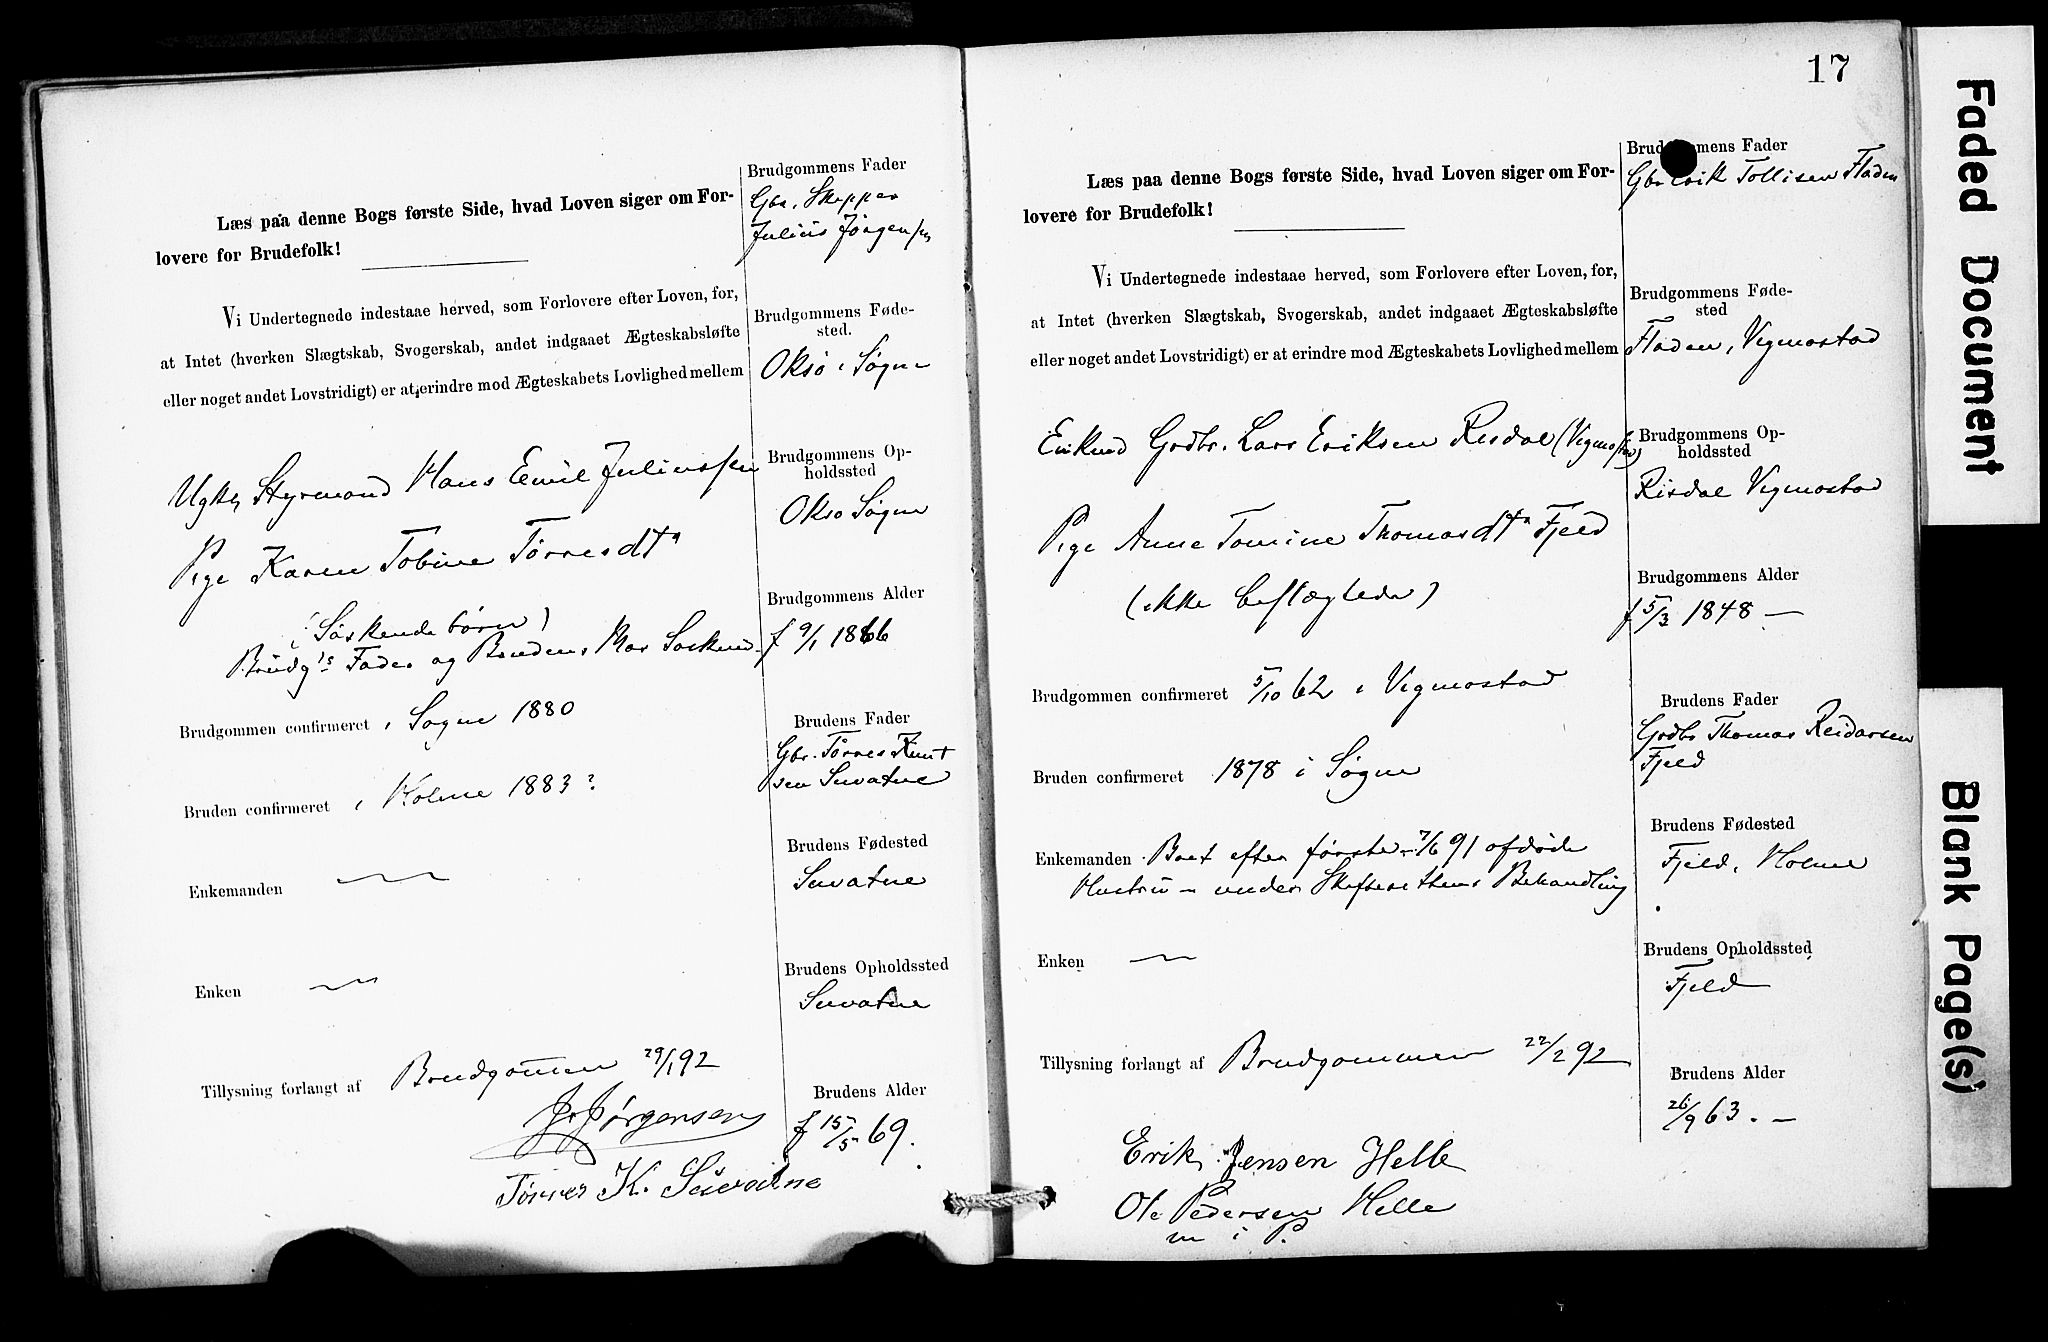 Læs paa denne Bogs første Side, hvad Loven siger om For-
lovere for Brudefolk!
Vi Undertegnede indestaae herved, som Forlovere efter Loven, for,
at Intet (hverken Slægtskab, Svogerskab, andet indgaaet Ægteskabsløfte
eller noget andet Lovstridigt) er at erindre mod Ægteskabets Lovlighed mellem
Ugkl, Styrmand Hans Emil Juliussen
Pige Karen Tobine Tørresdtr
(Søskendebørn)
Brudgs Fader og Brudens Mor Søskend
Brudgommen confirmeret i Søgne 1880
Bruden confirmeret i Holme 1883?
Enkemanden
Enken
Tillysning forlangt af Brudgommen 29/1 92
J. Jørgensen
Tørres K. Suvatne
Brudgommens Fader
Gbr. Skipper
Julius Jørgensen
Brudgommens Føde-
sted.
Oksø i Søgne
Brudgommens Op-
holdssted
Oksø Søgne
Brudgommens Alder
f 9/1 1866
Brudens Fader
Gbr. Tørres Knut
sen Suvatne
Brudens Fødested
Suvatne
Brudens Opholdssted
Suvatne
Brudens Alder
f 15/5 69.
17
Læs paa denne Bogs første Side, hvad Loven siger om For-
lovere for Brudefolk!
Vi Undertegnede indestaae herved, som Forlovere efter Loven, for,
at Intet (hverken Slægtskab, Svogerskab, andet indgaaet Ægteskabsløfte
eller noget andet Lovstridigt) er at erindre mod Ægteskabets Lovlighed mellem
Enkmd Grdbr. Lars Eriksen Risdal (Vigmostad)
Pige Anne Tomine Thomasdtr Fjeld
(ikke beslægtede)
Brudgommen confirmeret 5/10 62 i Vigmostad
Bruden confirmeret 1878 i Søgne
Enkemanden Boet efter første 7/6 91 afdøde
Hustru - under Skifterettens Behandling
Enken
Tillysning forlangt af Brudgommen 22/2 92
Erik Jensen Helle
Ole Pedersen Helle
m i P.
Brudgommens Fader
Gbr Erik Tollisen Fladen
Brudgommens Føde-
sted
Fladen, Vigmostad
Brudgommens Op-
holdssted
Risdal Vigmostad
Brudgommens Alder
f 5/3 1848 —
Brudens Fader
Grdbr Thomas Reidarsen
Fjeld
Brudens Fødested
Fjeld, Holme
Brudens Opholdssted
Fjeld
Brudens Alder
26/9 63. —
Faded Document
Blank Page(s)